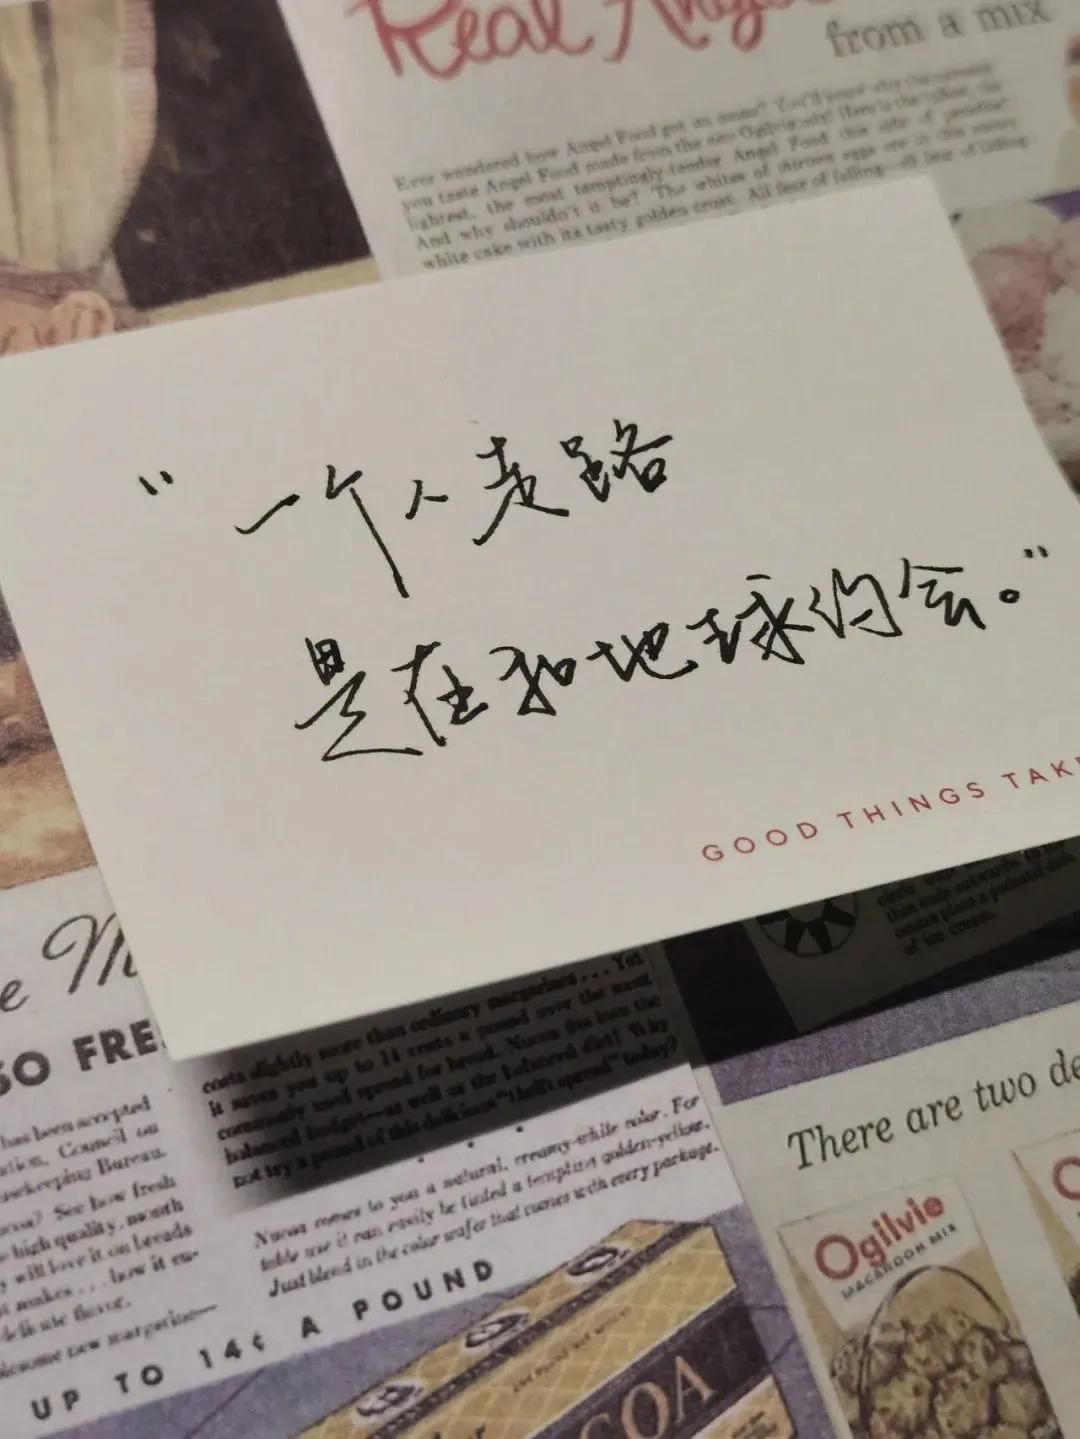 Real Ange
from a mix
Ever wondered how Angel Food got its name? You'll know when
you taste Angel Food made from the new Ogilvie mix! Here is the
lightest, the most temptingly-tender Angel Food this side of paradise!
And why shouldn't it be? The whites of thirteen eggs are in this
white cake with its tasty golden crust. All fear of falling—all fear of failing
“一个人走路
是在和地球约会。”
GOOD THINGS TAK
circle with
thin ends outwards. In the
centre plant a
of ice cream.
e M
SO FRE
costs slightly more than ordinary margarines . . . Yet
it saves you up to 14 cents a pound over the most
commonly used spread for bread. Nucoa fits into the
balanced budget—as well as the balanced diet! Why
not try a pound of this delicious "thrift spread" today?
has been accepted
tion, Council on
sekeeping Bureau.
See how fresh
high quality, month
will love it on breads
makes . . . how it en-
delicate flavor.
lesome new margarine—
Nucoa comes to you a natural, creamy-white color. For
table use it can easily be tinted a tempting golden-yellow.
Just blend in the color wafer that comes with every package.
UP TO 14¢ A POUND
There are two de
Ogilvie
MACAROON MIX
O
COA